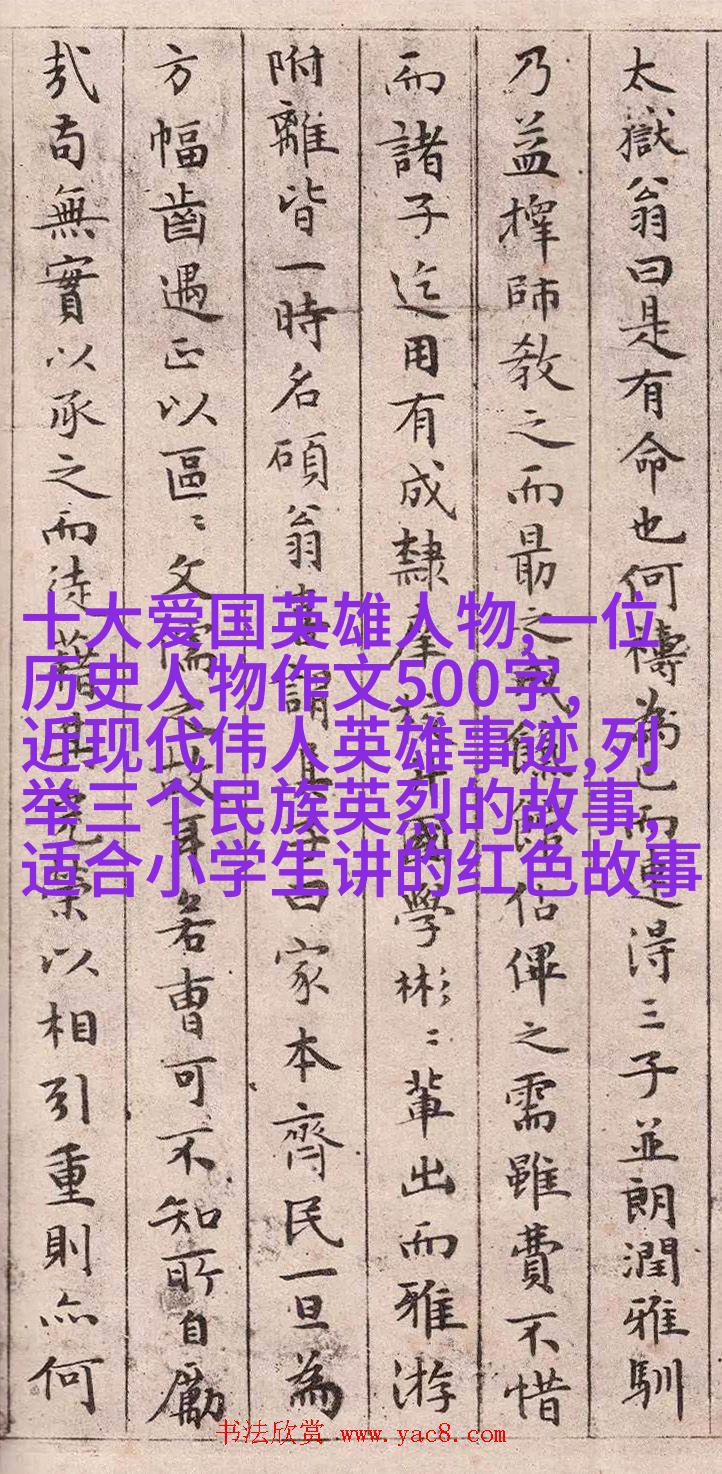 太嶽翁曰是有命也何禱為已而連得三子並朗潤雅馴
乃益擇師教之而最之佔俾之需雖費不惜
而諸子迄用有成隸庠國學彬〻輩出而雅游
附離皆一時名碩翁喜謂曰家本齊民一旦為
方幅齒遇正以區〻文儒之故耳若曹可不知所自勵
哉苟無實以承之而徒藉其寵榮以相引重則亦何
十大爱国英雄人物,一位
历史人物作文500字,
近现代伟人英雄事迹,列
举三个民族英烈的故事,
适合小学生讲的红色故事
书法欣赏 www.yac8.com